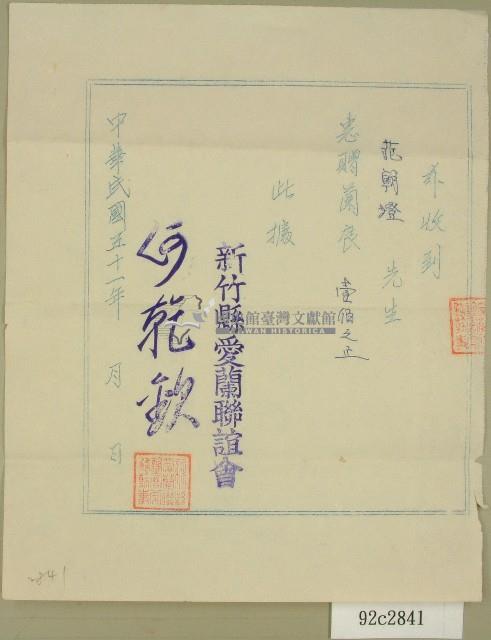 茲收到
范朝燈 先生
惠贈蘭展 壹佰元正
此據
新竹縣愛蘭聯誼會
何乾欽
中華民國五十一年 月 日
館臺灣文獻館
WAN HISTORICA
841
92c2841